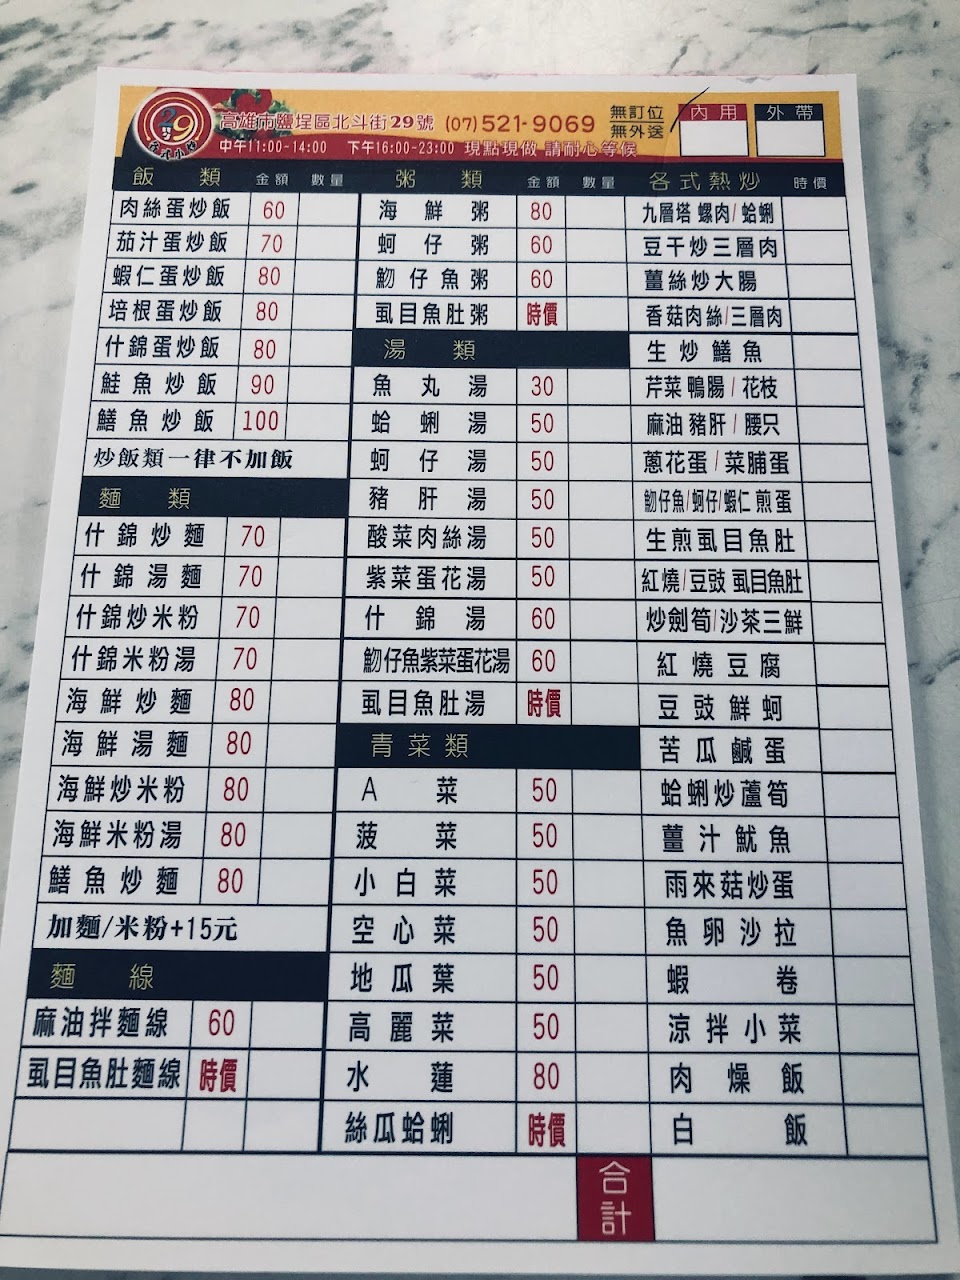 29
台式小炒
高雄市鹽埕區北斗街29號 (07)521-9069
中午11:00-14:00 下午16:00-23:00 現點現做 請耐心等候
無訂位
無外送
內用
外帶
飯類 金額 數量
肉絲蛋炒飯 60
茄汁蛋炒飯 70
蝦仁蛋炒飯 80
培根蛋炒飯 80
什錦蛋炒飯 80
鮭魚炒飯 90
鱔魚炒飯 100
炒飯類一律不加飯
麵類
什錦炒麵 70
什錦湯麵 70
什錦炒米粉 70
什錦米粉湯 70
海鮮炒麵 80
海鮮湯麵 80
海鮮炒米粉 80
海鮮米粉湯 80
鱔魚炒麵 80
加麵/米粉+15元
麵線
麻油拌麵線 60
虱目魚肚麵線 時價
粥類 金額 數量
海鮮粥 80
蚵仔粥 60
魩仔魚粥 60
虱目魚肚粥 時價
湯類
魚丸湯 30
蛤蜊湯 50
蚵仔湯 50
豬肝湯 50
酸菜肉絲湯 50
紫菜蛋花湯 50
什錦湯 60
魩仔魚紫菜蛋花湯 60
虱目魚肚湯 時價
青菜類
A菜 50
菠菜 50
小白菜 50
空心菜 50
地瓜葉 50
高麗菜 50
水蓮 80
絲瓜蛤蜊 時價
各式熱炒 時價
九層塔 螺肉/蛤蜊
豆干炒三層肉
薑絲炒大腸
香菇肉絲/三層肉
生炒鱔魚
芹菜鴨腸/花枝
麻油豬肝/腰只
蔥花蛋/菜脯蛋
魩仔魚/蚵仔/蝦仁煎蛋
生煎虱目魚肚
紅燒/豆豉 虱目魚肚
炒劍筍/沙茶三鮮
紅燒豆腐
豆豉鮮蚵
苦瓜鹹蛋
蛤蜊炒蘆筍
薑汁魷魚
雨來菇炒蛋
魚卵沙拉
蝦卷
涼拌小菜
肉燥飯
白飯
合計